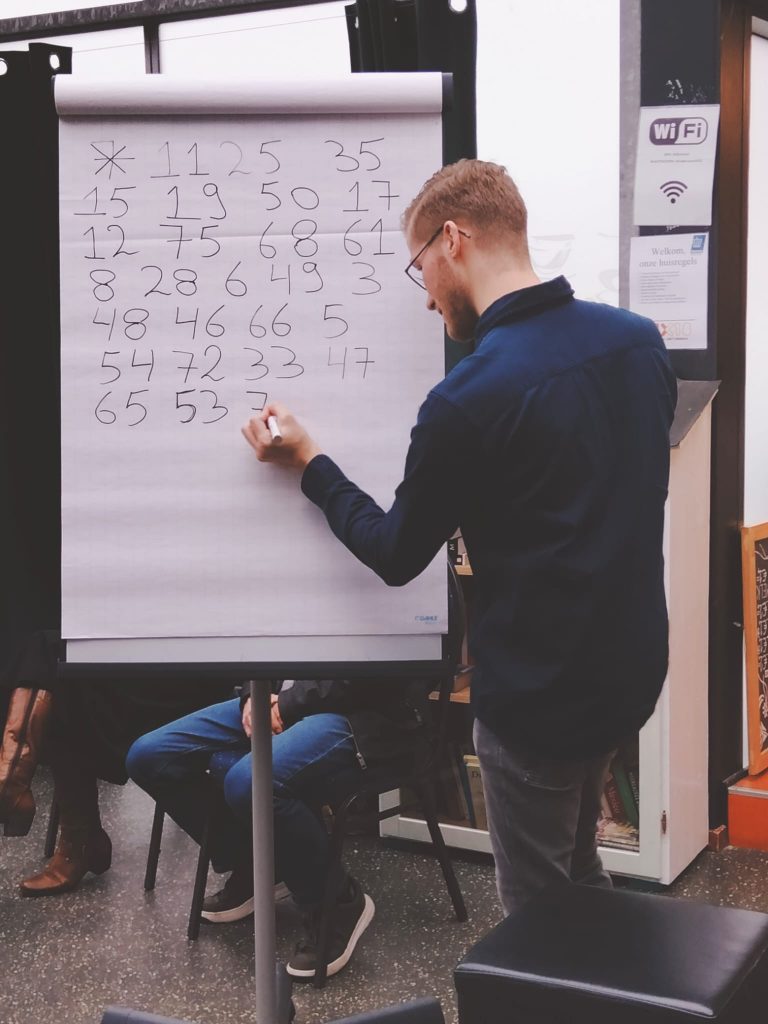 * 11 25 35
15 19 50 17
12 75 68 61
8 28 6 49 3
48 46 66 5
54 72 33 47
65 53 7
WiFi
Welkom,
onze huisregels